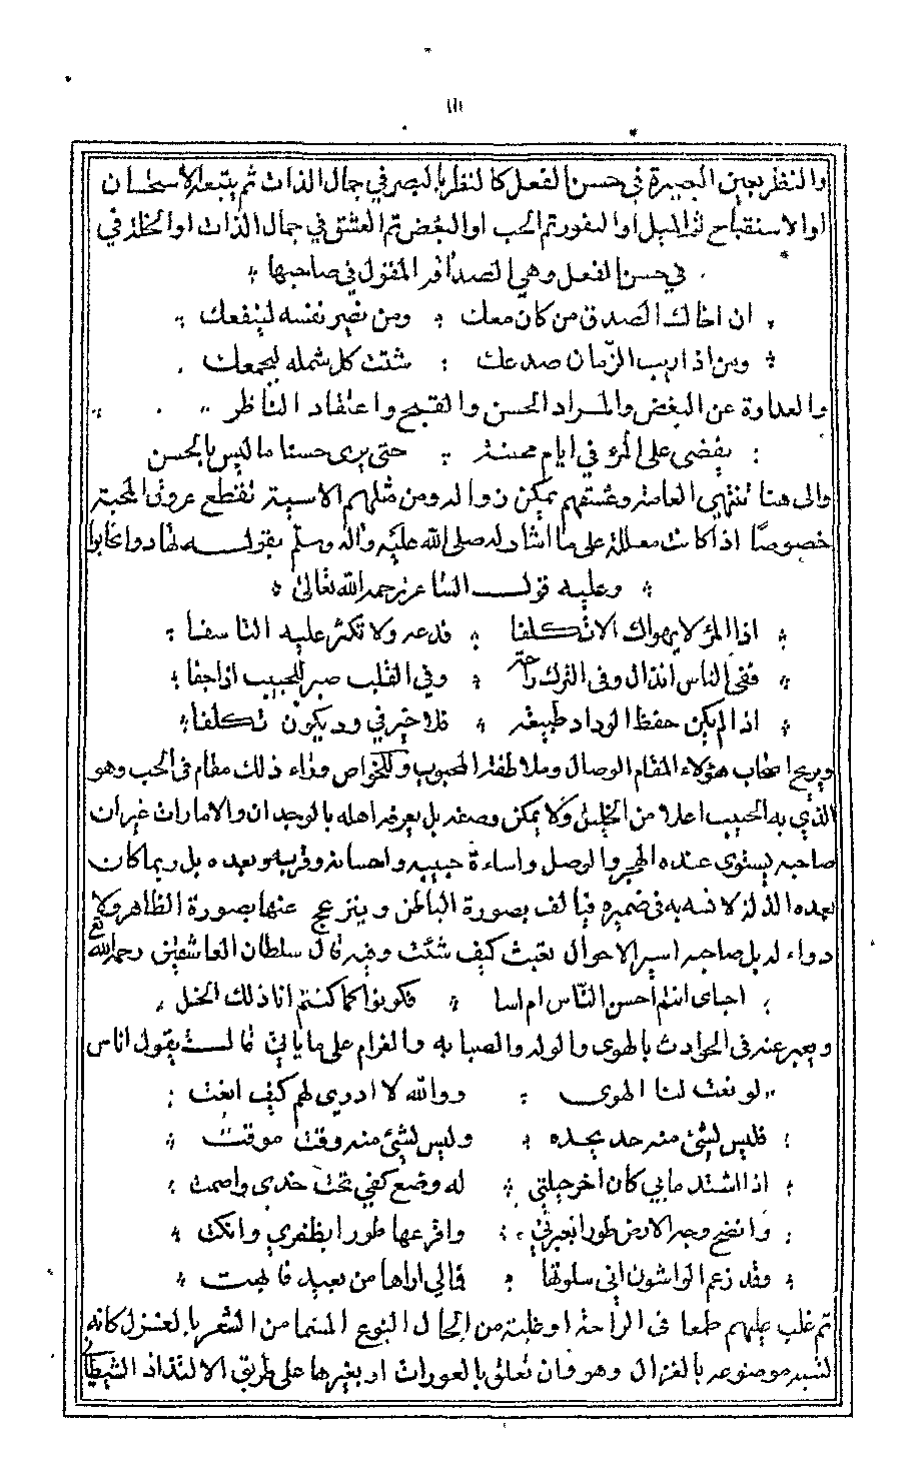 ١١١
والنظر بعين البصيرة في حسن الفعل كالنظر بالبصر في جمال الذات ثم يتبعه الاستحسان
او الاستقباح ثم الميل او النفور ثم الحب او البغض ثم العشق في جمال الذات او الخلة في
في حسن الفعل وهي الصداقة المقول في صاحبها
ان اخاك الصدق من كان معك ومن يضر نفسه لينفعك
ومن اذا ريب الزمان صدعك شتت كل شمله ليجمعك
والعداوة عن البغض والمراد الحسن والقبيح واعتقاد الناظر
يقضى على المرء في ايام محسنة حتى يرى حسنا ما ليس بالحسن
والى هنا تنتهي العامة وعشقهم يمكن زواله ومن مثلهم الاسية تقتطع عروق المحبة
خصوصًا اذا كانت معللة على ما اشار له صلى الله عليه وآله وسلم بقوله تهادوا تحابوا
وعليه قول الشاعر رحمه الله تعالى
اذا المرء لا يهواك الا تكلفا فدعه ولا تكثر عليه التاسفا
ففي الناس ابدال وفى الترك راحة وفي القلب صبر للحبيب اذا جفا
اذا لم يكن حفظ الوداد طبيعة فلا خير في ود يكون تكلفا
ويرجح اصحاب هؤلاء المقام الوصال وملاطفة المحبوب وللخواص وراء ذلك مقام فى الحب وهو
الذي به الحبيب اعلا من الخليل ولا يمكن وصفه بل يعرفه اهله بالوجدان والامارات غير ان
صاحبه يستوي عنده الهجر والوصل واساءة حبيبه واحسانه وقربه وبعده بل ربما كان
بعده الذ له لانسه به في ضميره فيالف بصورة الباطن وينزعج عنها بصورة الظاهر ولا يعى
دواء له بل صاحبه اسير الاحوال تعبث كيف شئت وفيه قال سلطان العاشقين رحمه الله
احباى انتم احسن الناس ام اسا فكونوا كما كنتم انا ذلك الخل
ويعبر عنه فى الحوادث بالهوى والوله والصبابه والغرام على ما ياتي قالت يقول اناس
لو نعت لنا الهوى ووالله لا ادري لهم كيف انعت
فليس لشئ منه حد يحده وليس لشئ منه وقت موقت
اذا اشتد ما بي كان اخر حيلتي له وضع كفي تحت خدى واصمت
وانضح وجه الارض طورا بعبرتي واقرعها طورا بظفري وانكت
وقد زعم الواشون انى سلوتها فمالي اراها من بعيد فابهت
ثم غلب عليهم طمعا فى الراحة او غلبة من الحال النوع المسما من الشعر بالغزل كانه
لشبه موضوعه بالغزال وهو فان تعلق بالعورات او بغيرها على طريق الالتذاذ الشيطاني